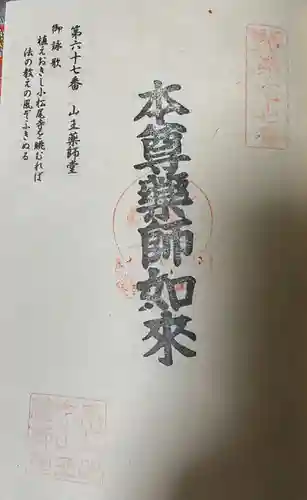 本尊薬師如來
第六十七番　山王薬師堂
御詠歌
植えおきし小松尾寺を眺むれば
法の教えの風ぞふきぬる